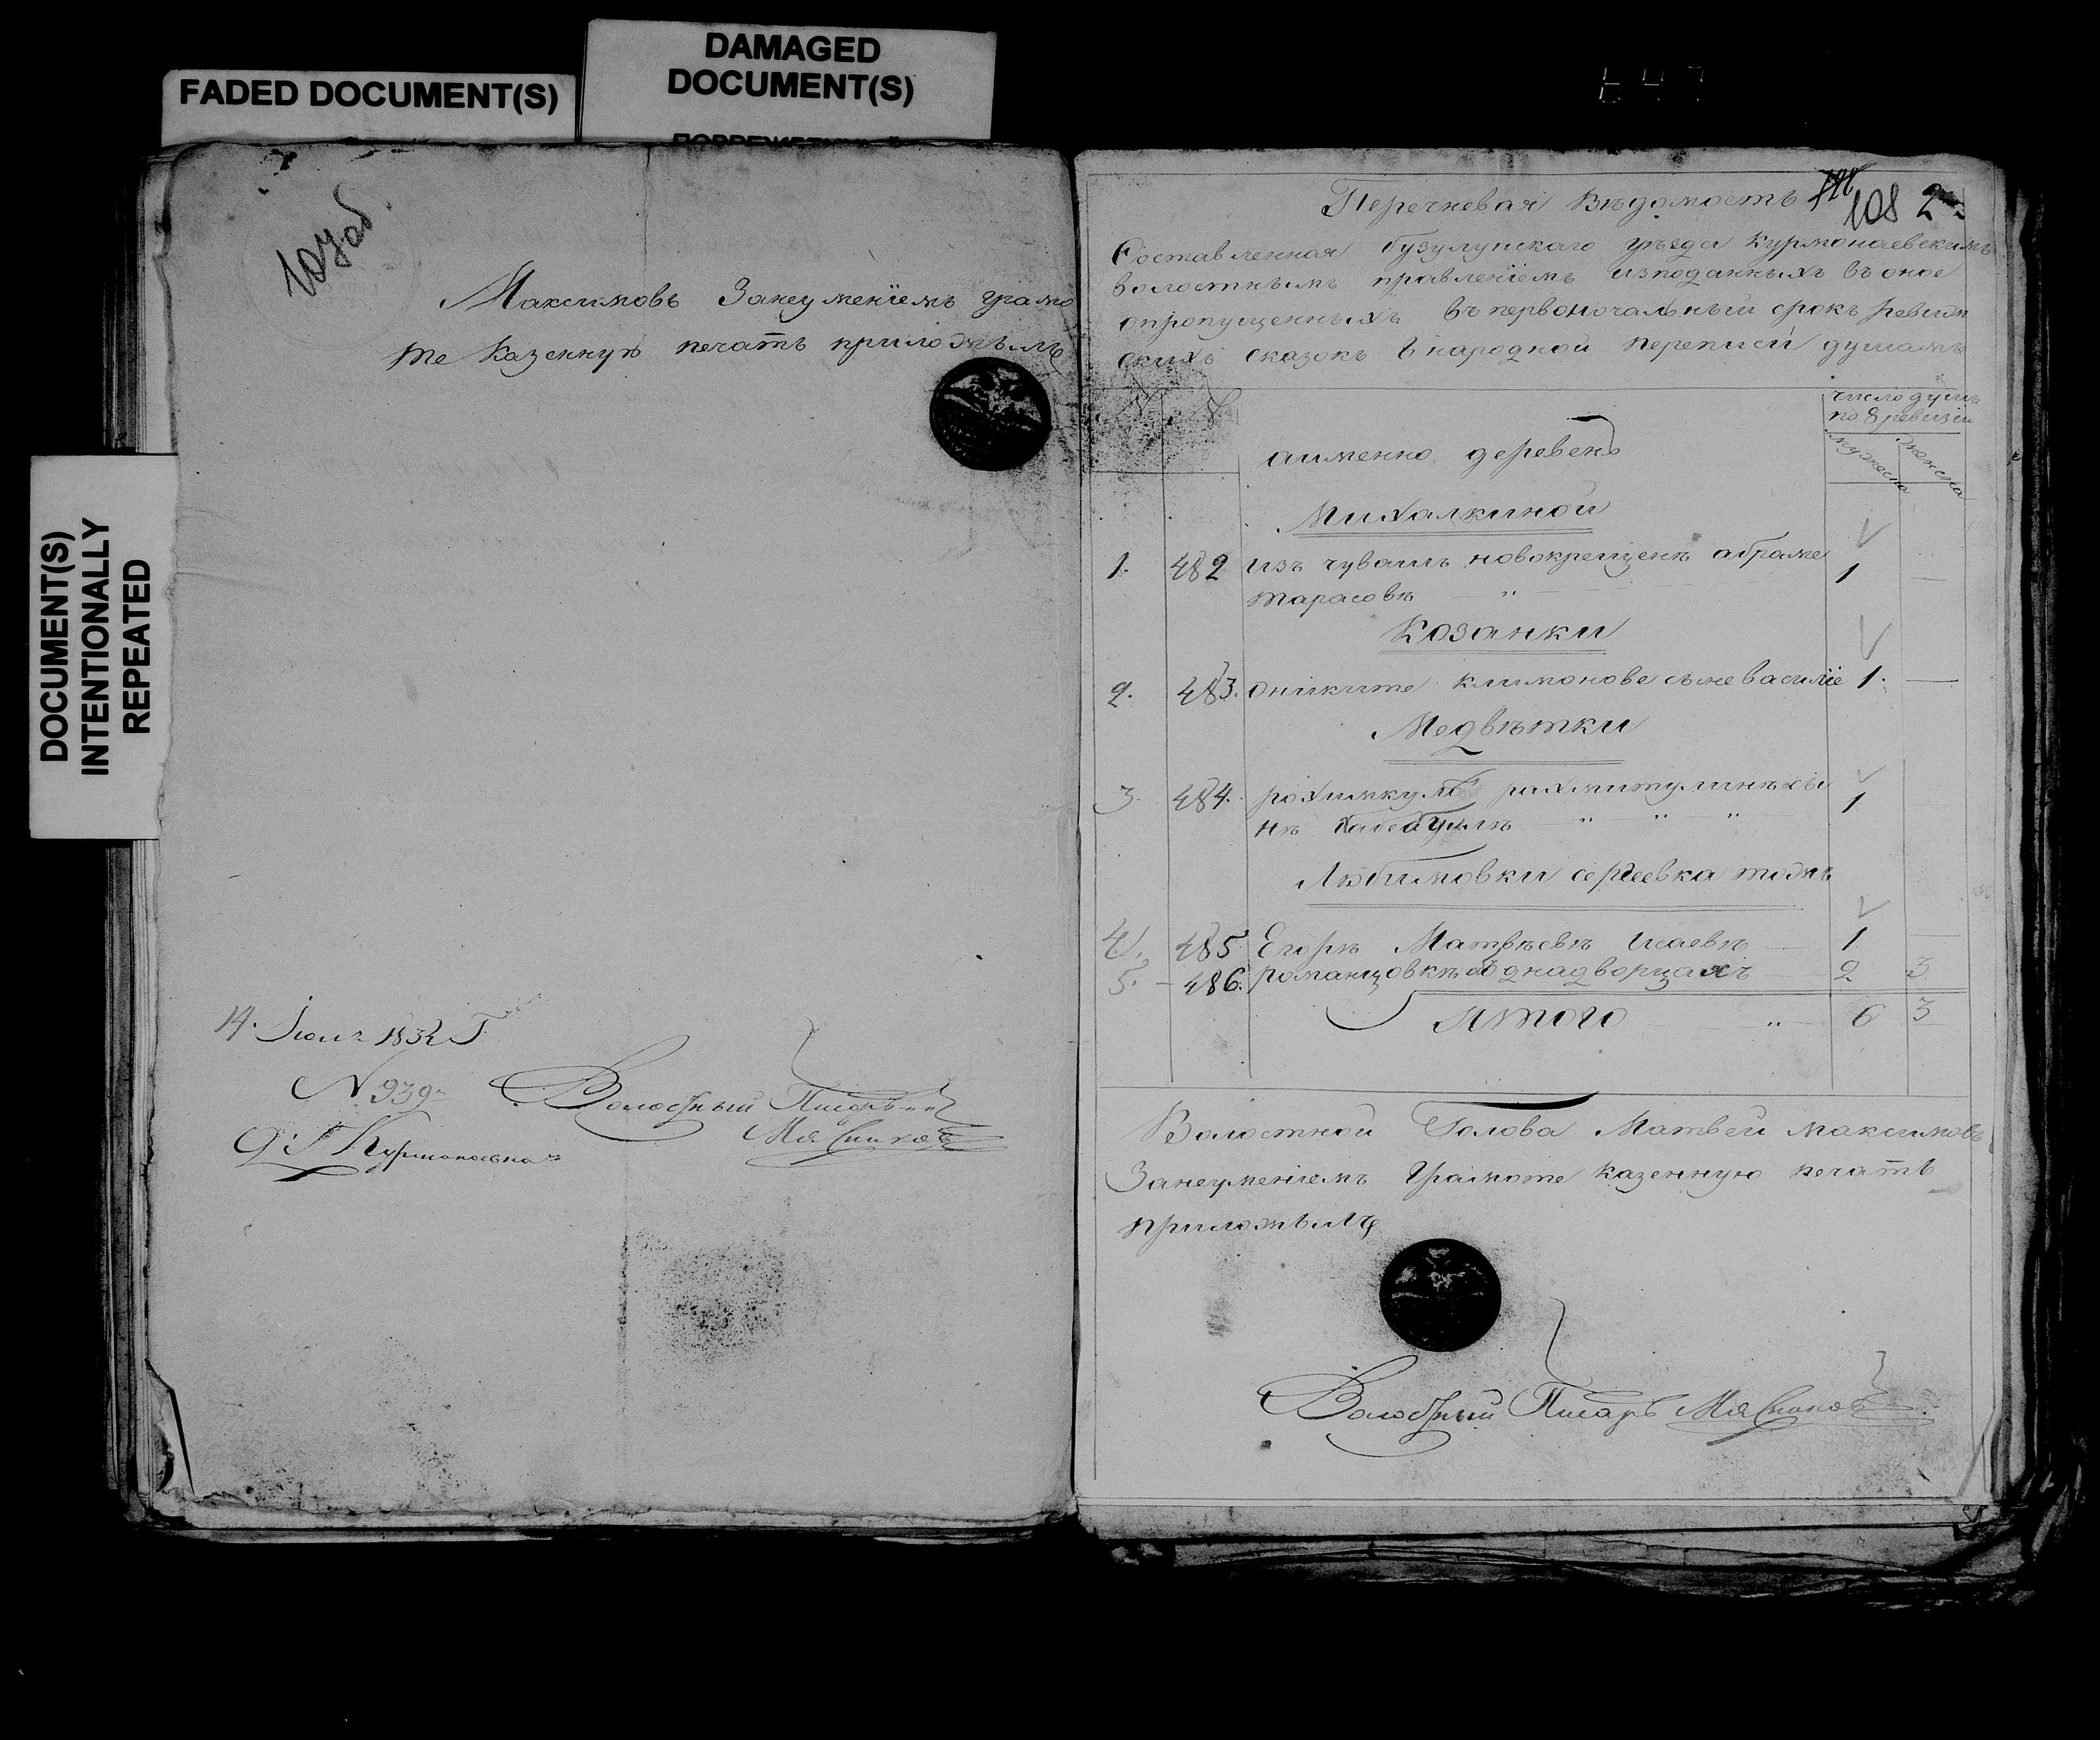 FADED DOCUMENT(S)
DAMAGED
DOCUMENT(S)
DOCUMENT(S)
INTENTIONALLY
REPEATED
647
107об
Максимовъ Занеуменїемъ грамо
те Казенную печать приложылъ
14. Іюля 183 Г.
N 939
Волосный Писарь
Мясниковъ
Перечневая Вѣдомость
108 2
Составленная бузулупскаго уѣзда Курмонаевскимъ
волостнымъ правленїемъ изподанныхъ въ оное
опропущенныхъ въ первоночальный срокъ ревизи
скихъ сказокъ в народной переписи душамъ
N N
число душъ
по 8 ревизіи
аименно деревень
мужеска
женска
Михалкиной
1. 482 изъ чувашъ новокрещенъ абраме 1 —
тарасовъ — "
Козанки
2. 483. ониките климонове сыне василїе 1. —
Медвѣтки
3 484. рохимкулъ рахмитулинъ сы 1
нъ " " "
Любимовки сергеевка тожъ
4. 485 Егоръ Матвѣевъ Исаевъ — 1 —
5. — 486. романцовкѣ об однадворцахъ 2 3
Итого " — 6 3
Волостной Голова Матвей максимовъ
Занеуменіемъ Грамоте казенную печать
приложылъ
Волосный Писарь Мясниковъ